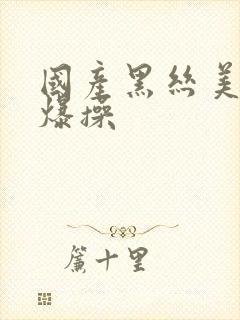 國產黑絲美
爆操
簾十里